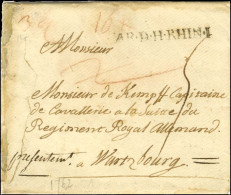 AR.D.H.RHIN.I
A Monsieur
Monsieur de Kempff Capitaine
de Cavallerie a la Suite du
Regiment Royal Allemand.
presentemt. a Wurtzbourg.
1762